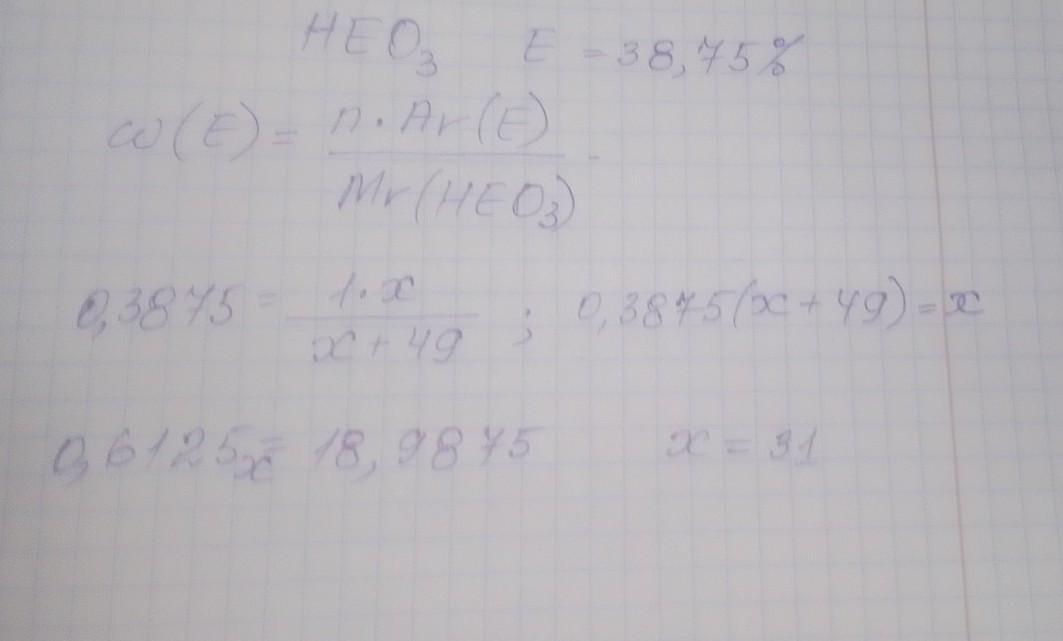 HEO₃ E = 38,75%
ω(E) = n·Ar(E) / Mr(HEO₃)
0,3875 = 1·x / x+49 ; 0,3875(x+49)=x
0,6125x = 18,9875 x = 31